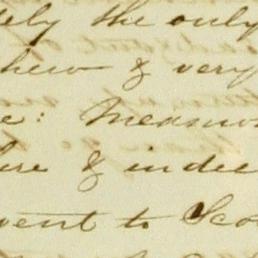 ely the only
hew & very
e: Measur
ere & indee
went to Sco